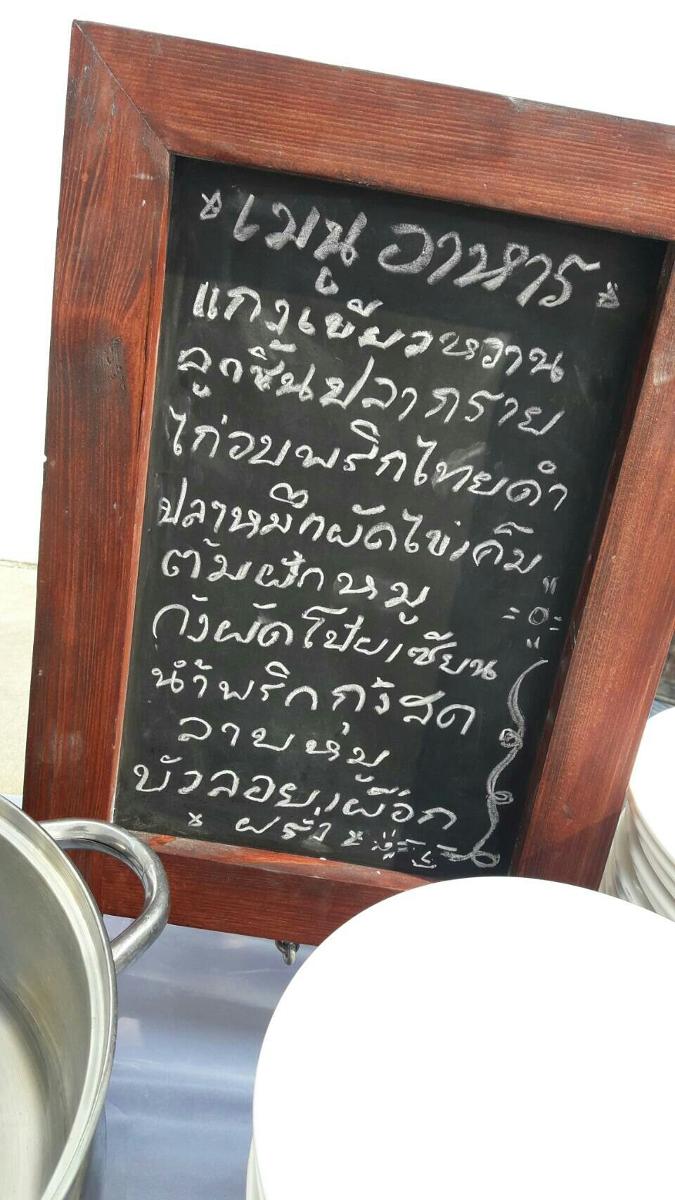 เมนู อาหาร
แกงเขียวหวาน
ลูกชิ้นปลากราย
ไก่อบพริกไทยดำ
ปลาหมึกผัดไข่เค็ม
ต้มฟักหมู
กุ้งผัดโป๊ยเซียน
น้ำพริกกุ้งสด
ลาบหมู
บัวลอยเผือก